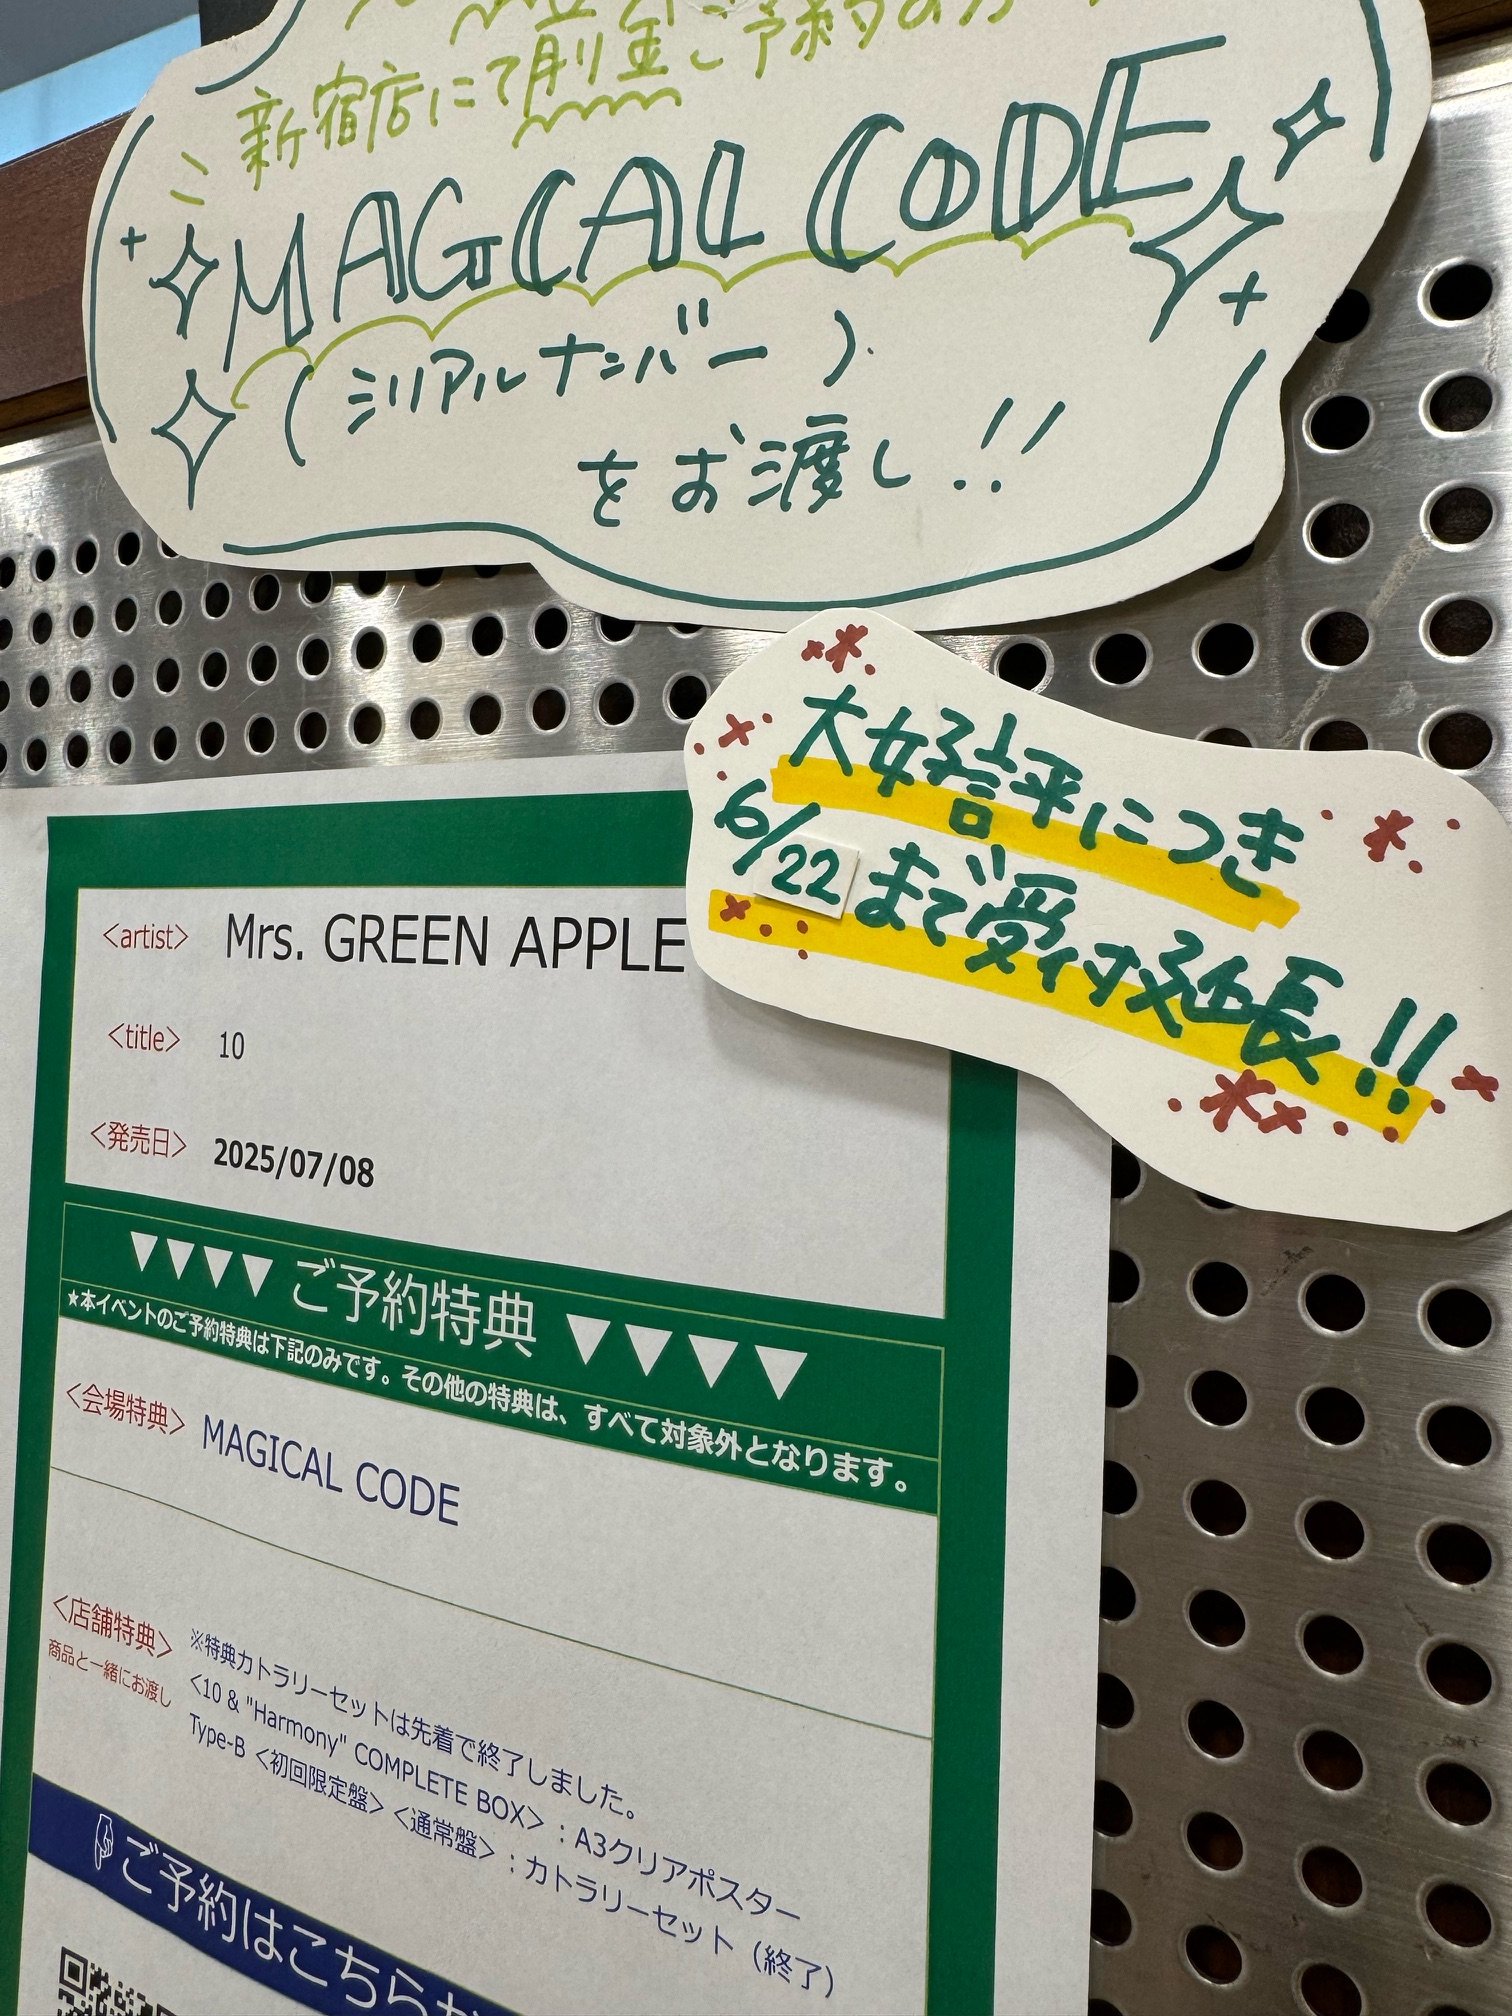 新宿店にて前金ご予約の方
MAGICAL CODE
(シリアルナンバー)
をお渡し!!
大好評につき
6/22まで受付延長!!
<artist> Mrs. GREEN APPLE
<title> 10
<発売日> 2025/07/08
▼▼▼▼ご予約特典▼▼▼▼
★本イベントのご予約特典は下記のみです。その他の特典は、すべて対象外となります。
<会場特典> MAGICAL CODE
<店舗特典>
商品と一緒にお渡し
※特典カトラリーセットは先着で終了しました。
<10 & "Harmony" COMPLETE BOX>:A3クリアポスター
Type-B <初回限定盤><通常盤>:カトラリーセット(終了)
ご予約はこちら